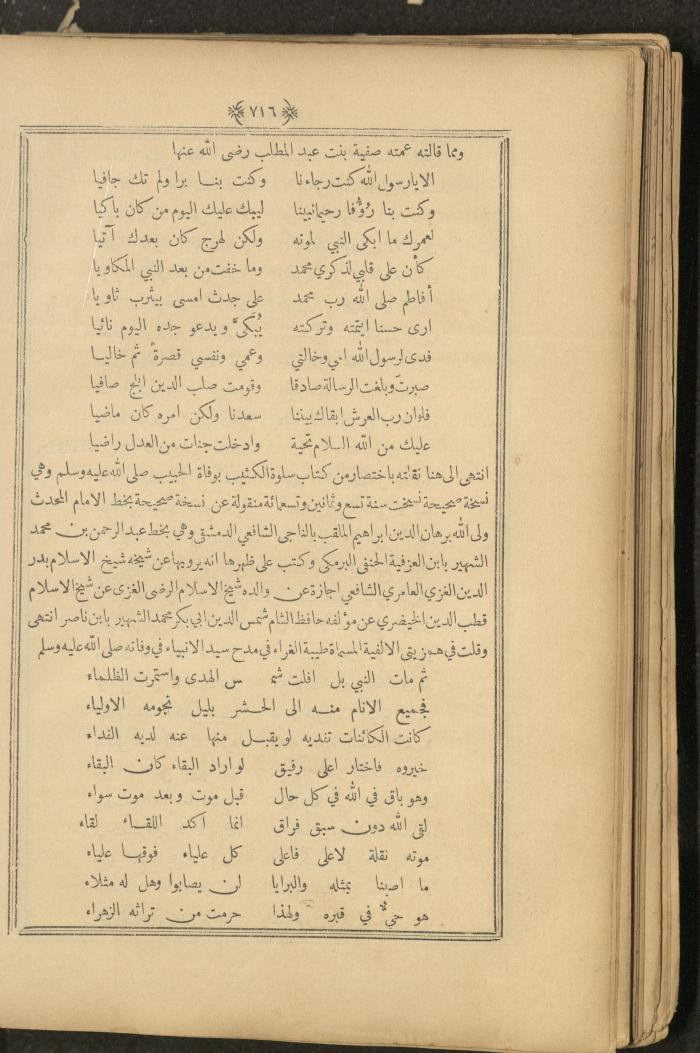 ٧١٦
ومما قالته عمته صفية بنت عبد المطلب رضى الله عنها
الا يارسول الله كنت رجاءنا وكنت بنا برا ولم تك جافيا
وكنت بنا رُؤُفا رحيما نبينا ليبك عليك اليوم من كان باكيا
لعمرك ما ابكى النبي لموته ولكن لهرج كان بعدك آتيا
كأن على قلبي لذكري محمد وما خفت من بعد النبي المكاويا
أفاطم صلى الله رب محمد على جدث امسى بيثرب ثاويا
ارى حسنا ايتمته وتركته يُبَكِّي ويدعو جده اليوم نائيا
فدى لرسول الله امي وخالتي وعمي ونفسي قصرةً ثم خاليا
صبرتَ وبلغت الرسالة صادقا وقومت صلب الدين ابلج صافيا
فلوان رب العرش ابقاك بيننا سعدنا ولكن امره كان ماضيا
عليك من الله السلام تحية وادخلت جنات من العدل راضيا
انتهى الى هنا نقلته باختصار من كتاب سلوة الكئيب بوفاة الحبيب صلى الله عليه وسلم وهي
نسخة صحيحة نسخت سنة تسع وثمانين وتسعمائة منقولة عن نسخة صحيحة بخط الامام المحدث
ولى الله برهان الدين ابراهيم الملقب بالناجى الشافعي الدمشقى وهي بخط عبد الرحمن بن محمد
الشهير بابن العزفية الحنفى البرمكي وكتب على ظهرها انه يرويها عن شيخه شيخ الاسلام بدر
الدين الغزي العامري الشافعي اجازة عن والده شيخ الاسلام الرضى الغزى عن شيخ الاسلام
قطب الدين الخيضري عن مؤلفه حافظ الشام شمس الدين ابي بكر محمد الشهير بابن ناصر انتهى
وقلت في همزيتى الالفية المسماة طيبة الغراء في مدح سيد الانبياء في وفاته صلى الله عليه وسلم
ثم مات النبي بل افلت شمـ ـس الهدى واستمرت الظلماء
فجميع الانام منه الى الحشر بليل نجومه الاولياء
كانت الكائنات تفديه لو يقبل منها عنه لديه الفداء
خيروه فاختار اعلى رفيق لو اراد البقاء كان البقاء
وهو باق في الله في كل حال قبل موت وبعد موت سواء
لقى الله دون سبق فراق انما اكد اللقاء لقاء
موته نقلة لاعلى فاعلى كل علياء فوقها علياء
ما اصبنا بمثله والبرايا لن يصابوا وهل له مثلاء
هو حيٌّ في قبره ولهذا حرمت من تراثه الزهراء